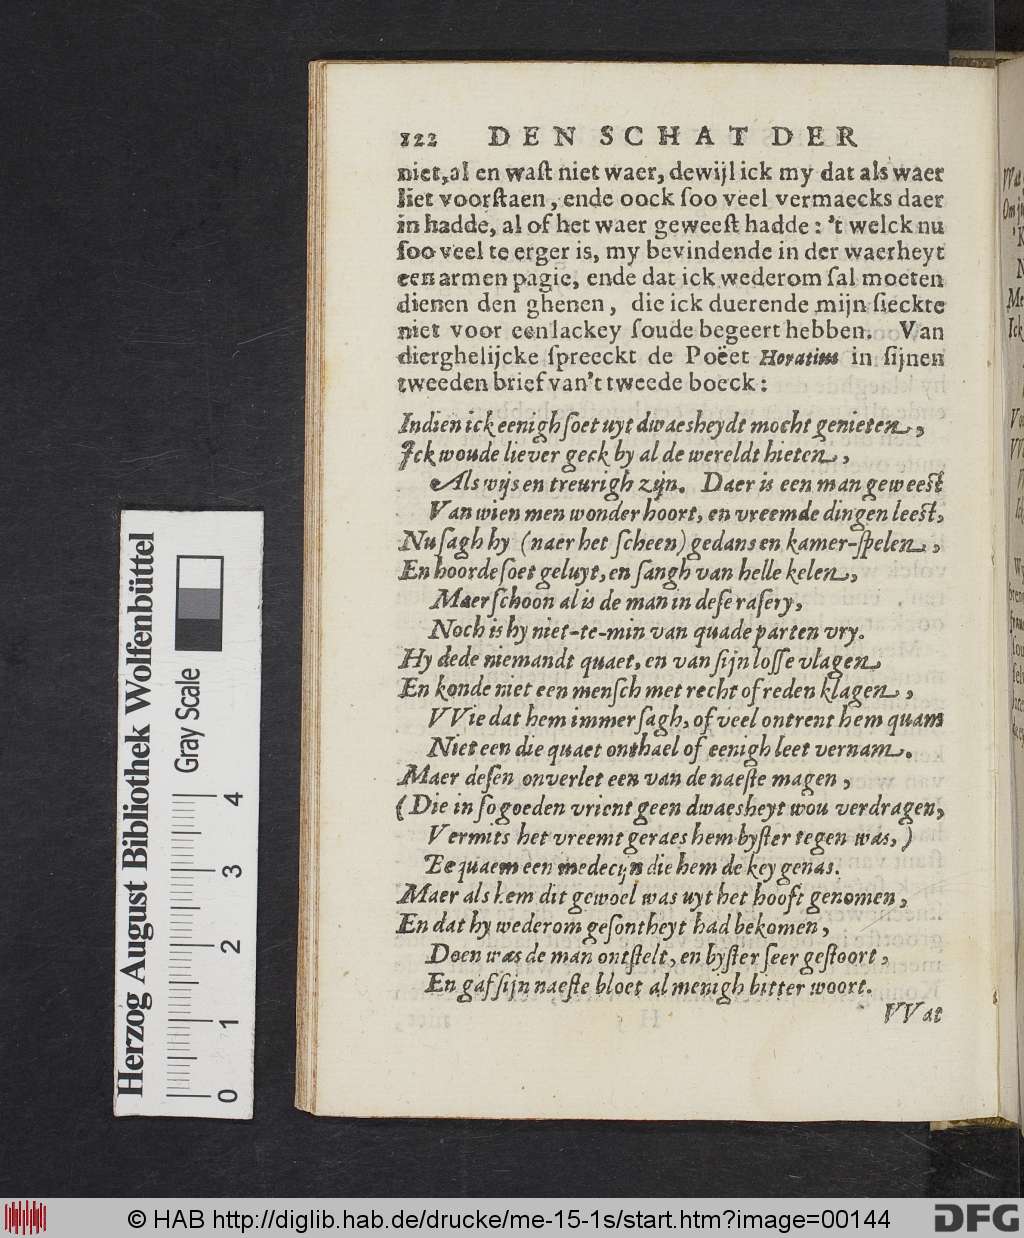 122 DEN SCHAT DER
niet, al en waſt niet waer, dewijl ick my dat als waer
liet voorſtaen, ende oock ſoo veel vermaecks daer
in hadde, al of het waer geweeſt hadde: 't welck nu
ſoo veel te erger is, my bevindende in der waerheyt
een armen pagie, ende dat ick wederom ſal moeten
dienen den ghenen, die ick duerende mijn ſieckte
niet voor een lackey ſoude begeert hebben. Van
dierghelijcke ſpreeckt de Poëet Horatius in ſijnen
tweeden brief van't tweede boeck:
Indien ick eenigh ſoet uyt dwaesheydt mocht genieten,
Ick woude liever geck by al de wereldt hieten,
Als wijs en treurigh zijn. Daer is een man geweeſt
Van wien men wonder hoort, en vreemde dingen leeſt,
Nu ſagh hy (naer het ſcheen) gedans en kamer-ſpelen,
En hoorde ſoet geluyt, en ſangh van helle kelen,
Maer ſchoon al is de man in deſe raſery,
Noch is hy niet-te-min van quade parten vry.
Hy dede niemandt quaet, en van ſijn loſſe vlagen
En konde niet een menſch met recht of reden klagen,
VVie dat hem immer ſagh, of veel ontrent hem quam
Niet een die quaet onthael of eenigh leet vernam.
Maer deſen onverlet een van de naeſte magen,
(Die in ſo goeden vrient geen dwaesheyt wou verdragen,
Vermits het vreemt geraes hem byſter tegen was,)
Ee quaem een medecijn die hem de key genas.
Maer als hem dit gewoel was uyt het hooft genomen,
En dat hy wederom geſontheyt had bekomen,
Doen was de man ontſtelt, en byſter ſeer geſtoort,
En gaf ſijn naeſte bloet al menigh bitter woort.
VVat
Herzog August Bibliothek Wolfenbüttel
Gray Scale
0 1 2 3 4
© HAB http://diglib.hab.de/drucke/me-15-1s/start.htm?image=00144
DFG